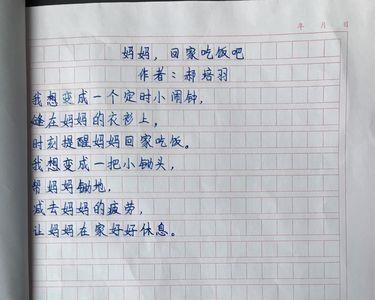 年 月 日
妈妈，回家吃饭吧
作者：郝培羽
我想变成一个定时小闹钟，
缝在妈妈的衣衫上，
时刻提醒妈妈回家吃饭。
我想变成一把小锄头，
帮妈妈锄地，
减去妈妈的疲劳，
让妈妈在家好好休息。